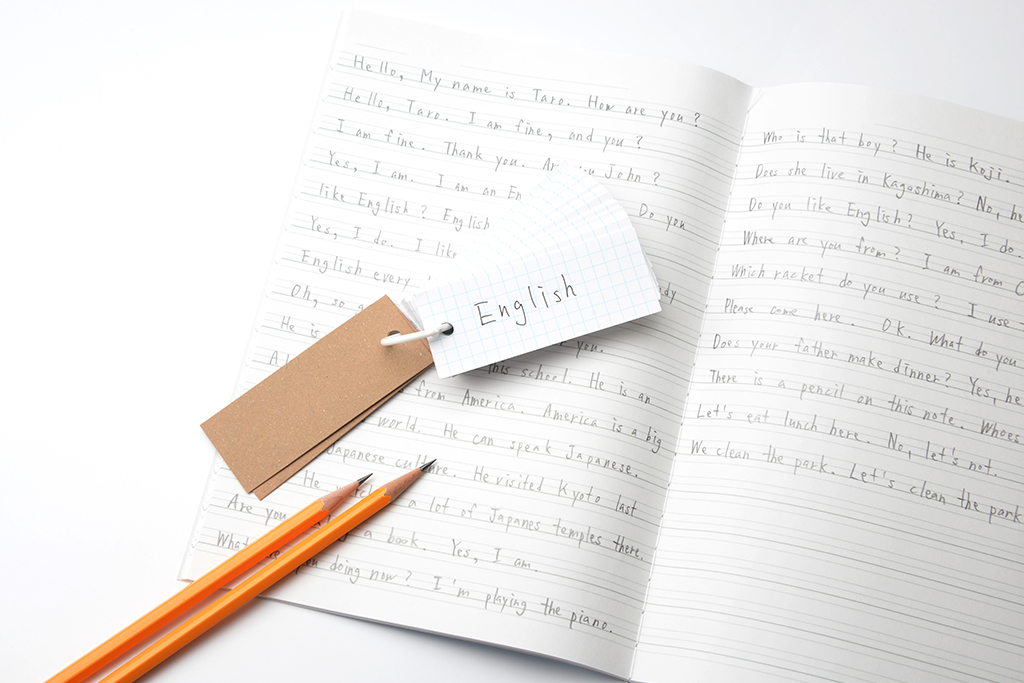 Hello, My name is Taro. How are you?
Hello, Taro. I am fine, and you?
I am fine. Thank you. Are you John?
Yes, I am. I am an En Do you
like English? English
Yes, I do. I like
English every
Oh, so
He is
you.
this school. He is an
from America. America is a big
world. He can speak Japanese.
Japanese culture. He visited Kyoto last
He a lot of Japanes temples there.
Are you a book. Yes, I am.
What are you doing now? I'm playing the piano.
English
Who is that boy? He is Koji.
Does she live in Kagoshima? No, he
Do you like English? Yes, I do.
Where are you from? I am from
Which racket do you use? I use
Please come here. OK. What do you
Does your father make dinner? Yes, he
There is a pencil on this note. Whoes
Let's eat lunch here. No, let's not.
We clean the park. Let's clean the park